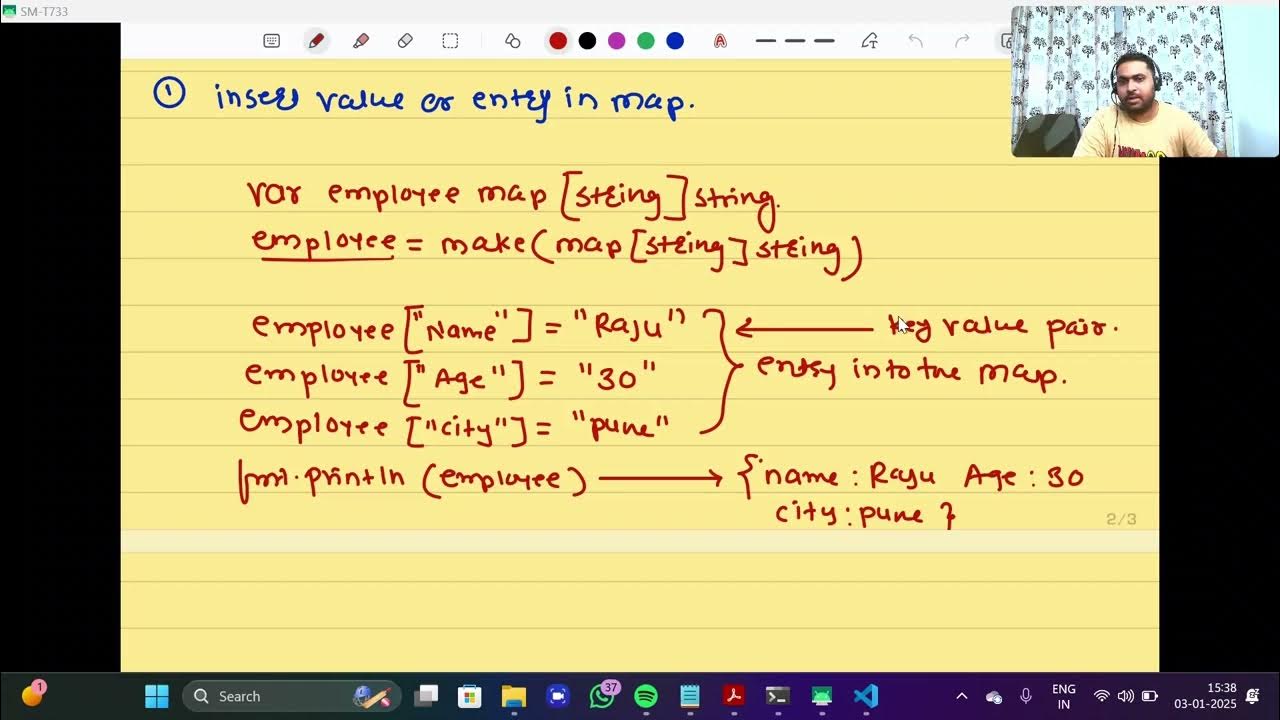 SM-T733
① insert value or entry in map.
var employee map [string] string.
employee = make(map [string] string)
employee ["Name"] = "Raju" ← key value pair.
employee ["Age"] = "30" entry into the map.
employee ["city"] = "pune"
fmt.println (employee) → {name : Raju Age : 30
city : pune }
2/3
1
Search
37
ENG
IN
15:38
03-01-2025